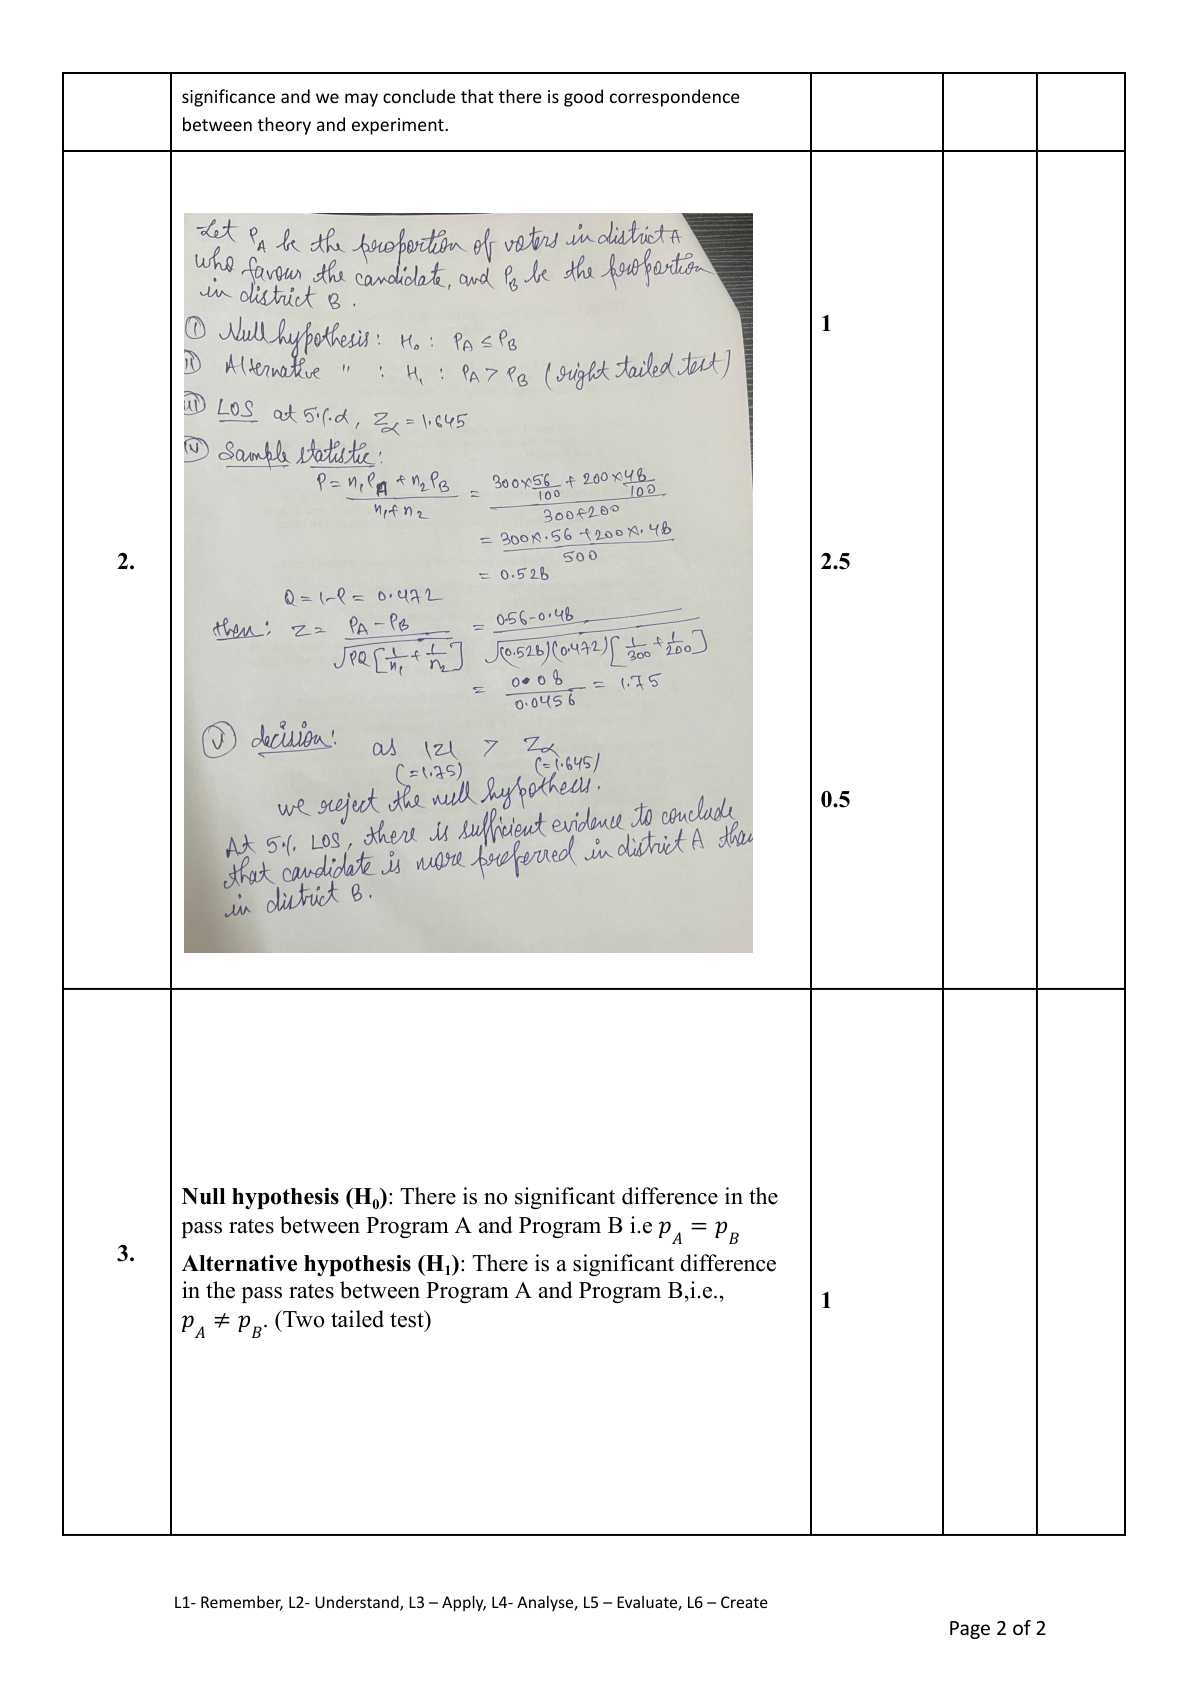 significance and we may conclude that there is good correspondence
between theory and experiment.
2.
Let P_A be the proportion of voters in district A
who favour the candidate, and P_B be the proportion
in district B.
(i) Null hypothesis : H₀ : P_A ≤ P_B
(ii) Alternative " : H₁ : P_A > P_B (right tailed test)
(iii) LOS at 5% α, Z_α = 1.645
(iv) Sample statistic :
P = (n₁P_A + n₂P_B)/(n₁+n₂) = (300×56/100 + 200×48/100)/(300+200)
= (300×.56 + 200×.48)/500
= 0.528
Q = 1-P = 0.472
then: Z = (P_A - P_B)/√(PQ[1/n₁ + 1/n₂]) = (0.56-0.48)/√((0.528)(0.472)[1/300 + 1/200])
= 0.08/0.0456 = 1.75
(v) decision: as |Z| > Z_α
(=1.75) (=1.645)
we reject the null hypothesis.
At 5% LOS, there is sufficient evidence to conclude
that candidate is more preferred in district A than
in district B.
1
2.5
0.5
3.
Null hypothesis (H₀): There is no significant difference in the
pass rates between Program A and Program B i.e p_A = p_B
Alternative hypothesis (H₁): There is a significant difference
in the pass rates between Program A and Program B,i.e.,
p_A ≠ p_B. (Two tailed test)
1
L1- Remember, L2- Understand, L3 – Apply, L4- Analyse, L5 – Evaluate, L6 – Create
Page 2 of 2